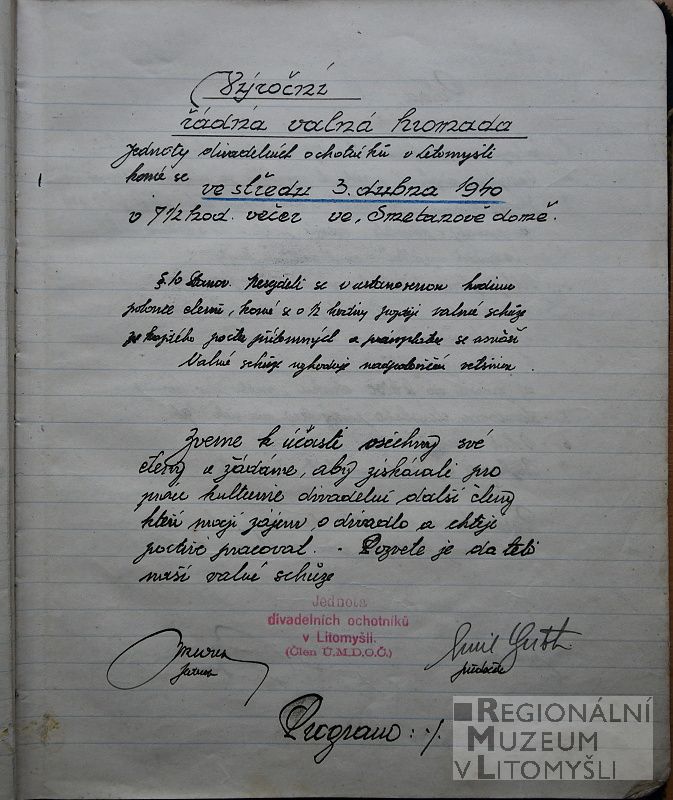 Výroční
řádná valná hromada
Jednoty divadelních ochotníků v Litomyšli
koná se
ve středu 3. dubna 1940
v 7 1/2 hod. večer ve, Smetanově domě.
§ 10 Stanov. Nesejdeli se v ustanovenou hodinu
polovic členů, koná se o 1/2 hodiny později valná schůze
za každého počtu přítomných a právoplatně se usnáší
Valná schůze rozhoduje nadpoloviční většinou.
Zveme k účasti všechny své
členy a žádáme, aby získávali pro
práci kulturně divadelní další členy
kteří mají zájem o divadlo a chtějí
poctivě pracovat. - Pozvete je do této
naší valné schůze
Jednota
divadelních ochotníků
v Litomyšli.
(Člen Ú.M.D.O.Č.)
Emil
jednatel
předseda
Program: ./.
REGIONÁLNÍ
MUZEUM
V LITOMYŠLI